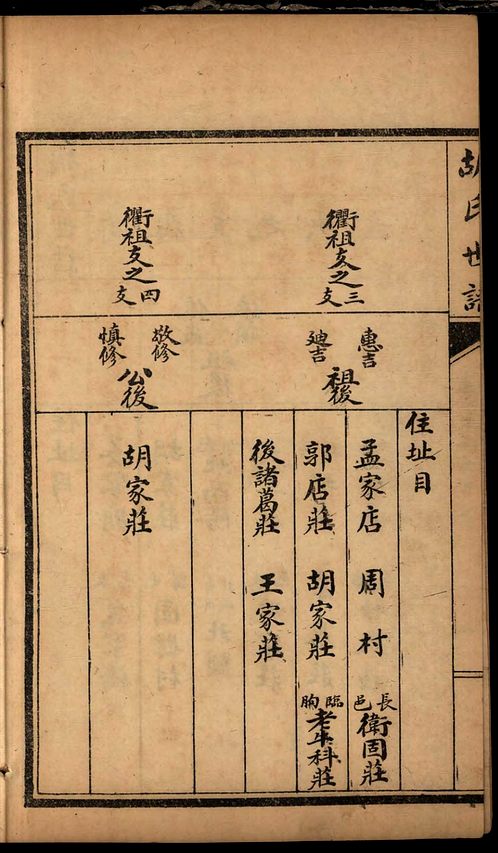 胡氏世譜
住址目
衢祖支之三支
惠吉
廸吉
祖後
孟家店 周村 長邑衛固莊
郭店莊 胡家莊 臨朐老牛科莊
後諸葛莊 王家莊
衢祖支之四支
敬修
慎修
公後
胡家莊